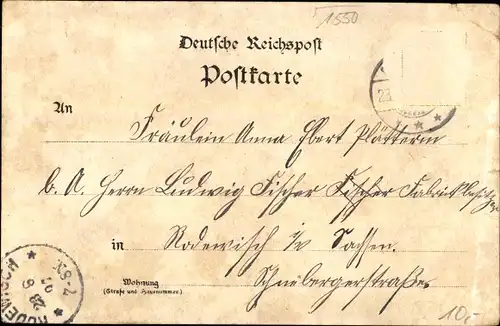 1550
Deutsche Reichspost
Postkarte
An
Fräulein Anna Ebert Plätterin
b. A. Herrn Ludwig Fischer Fischer Fabrikbesitzer
in Rodewisch i/V Sachsen.
Wohnung
(Straße und Hausnummer.)
Schneebergerstraße
10,-